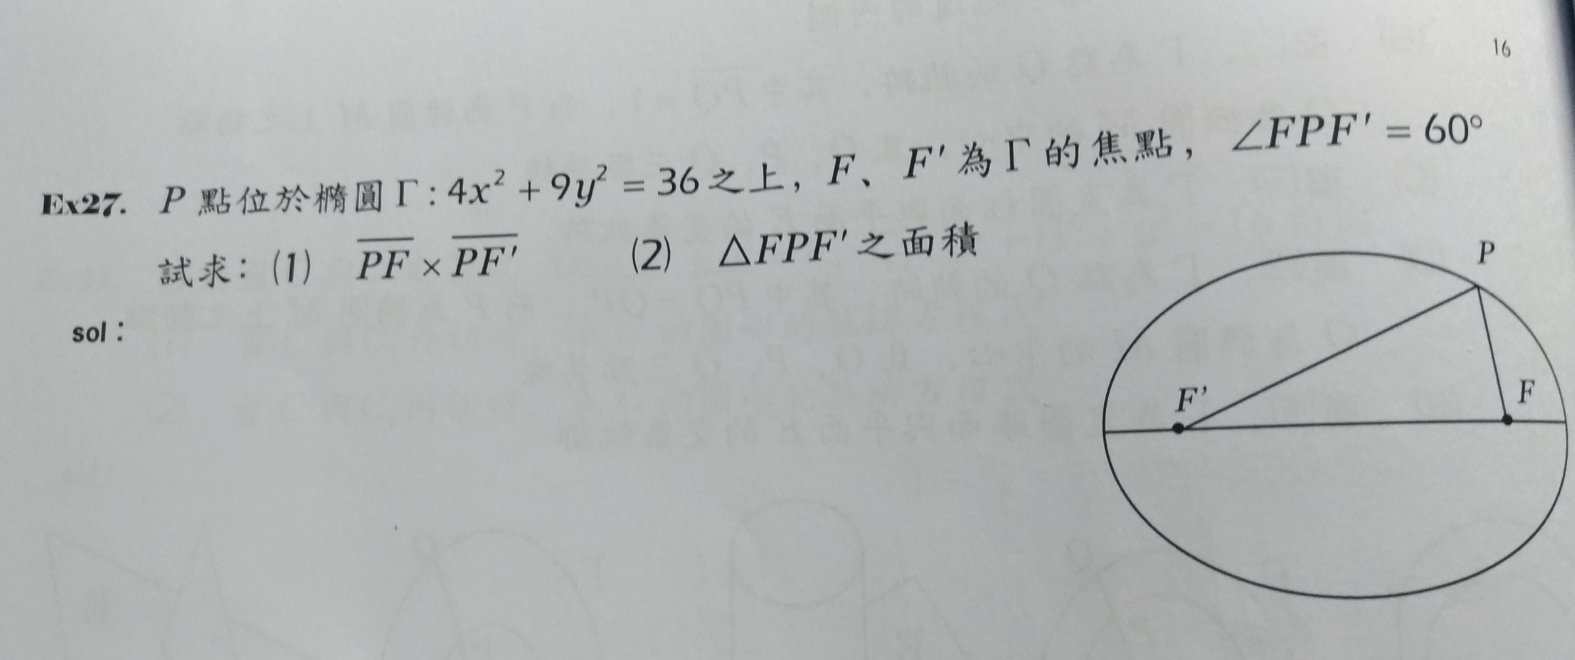 16
Ex27. P 點位於橢圓 Γ : 4x² + 9y² = 36 之上, F、F' 為 Γ 的焦點, ∠FPF' = 60°
試求: (1) \overline{PF} × \overline{PF'} (2) △FPF' 之面積
sol :
P
F'
F